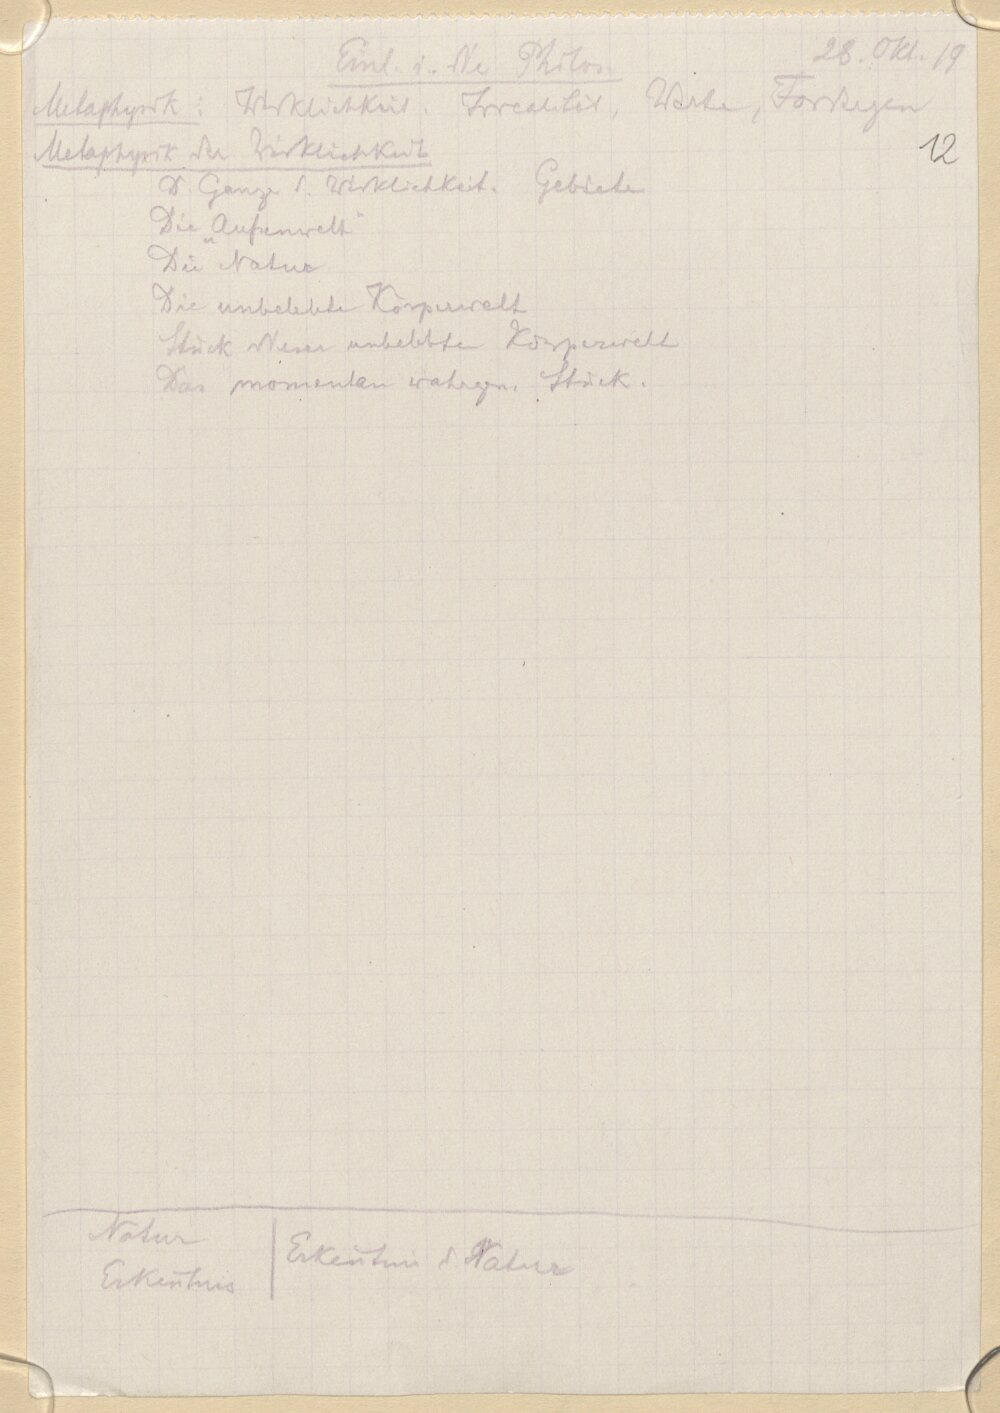 Einl. i. die Philos. 28. Okt. 19
Metaphysik: Wirklichkeit. Irrealität, Werte,
12
Metaphysik der Wirklichkeit
D. Ganze d. Wirklichkeit. Gebiete
Die „Außenwelt"
Die Natur
Die unbelebte Körperwelt
Stück dieser unbelebten Körperwelt
Das momentan wahrgen. Stück.
Natur
Erkeñtnis
Erkeñtnis d Natur